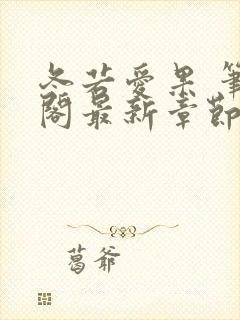 冬若爱果 笔
阁最新章节
葛爷